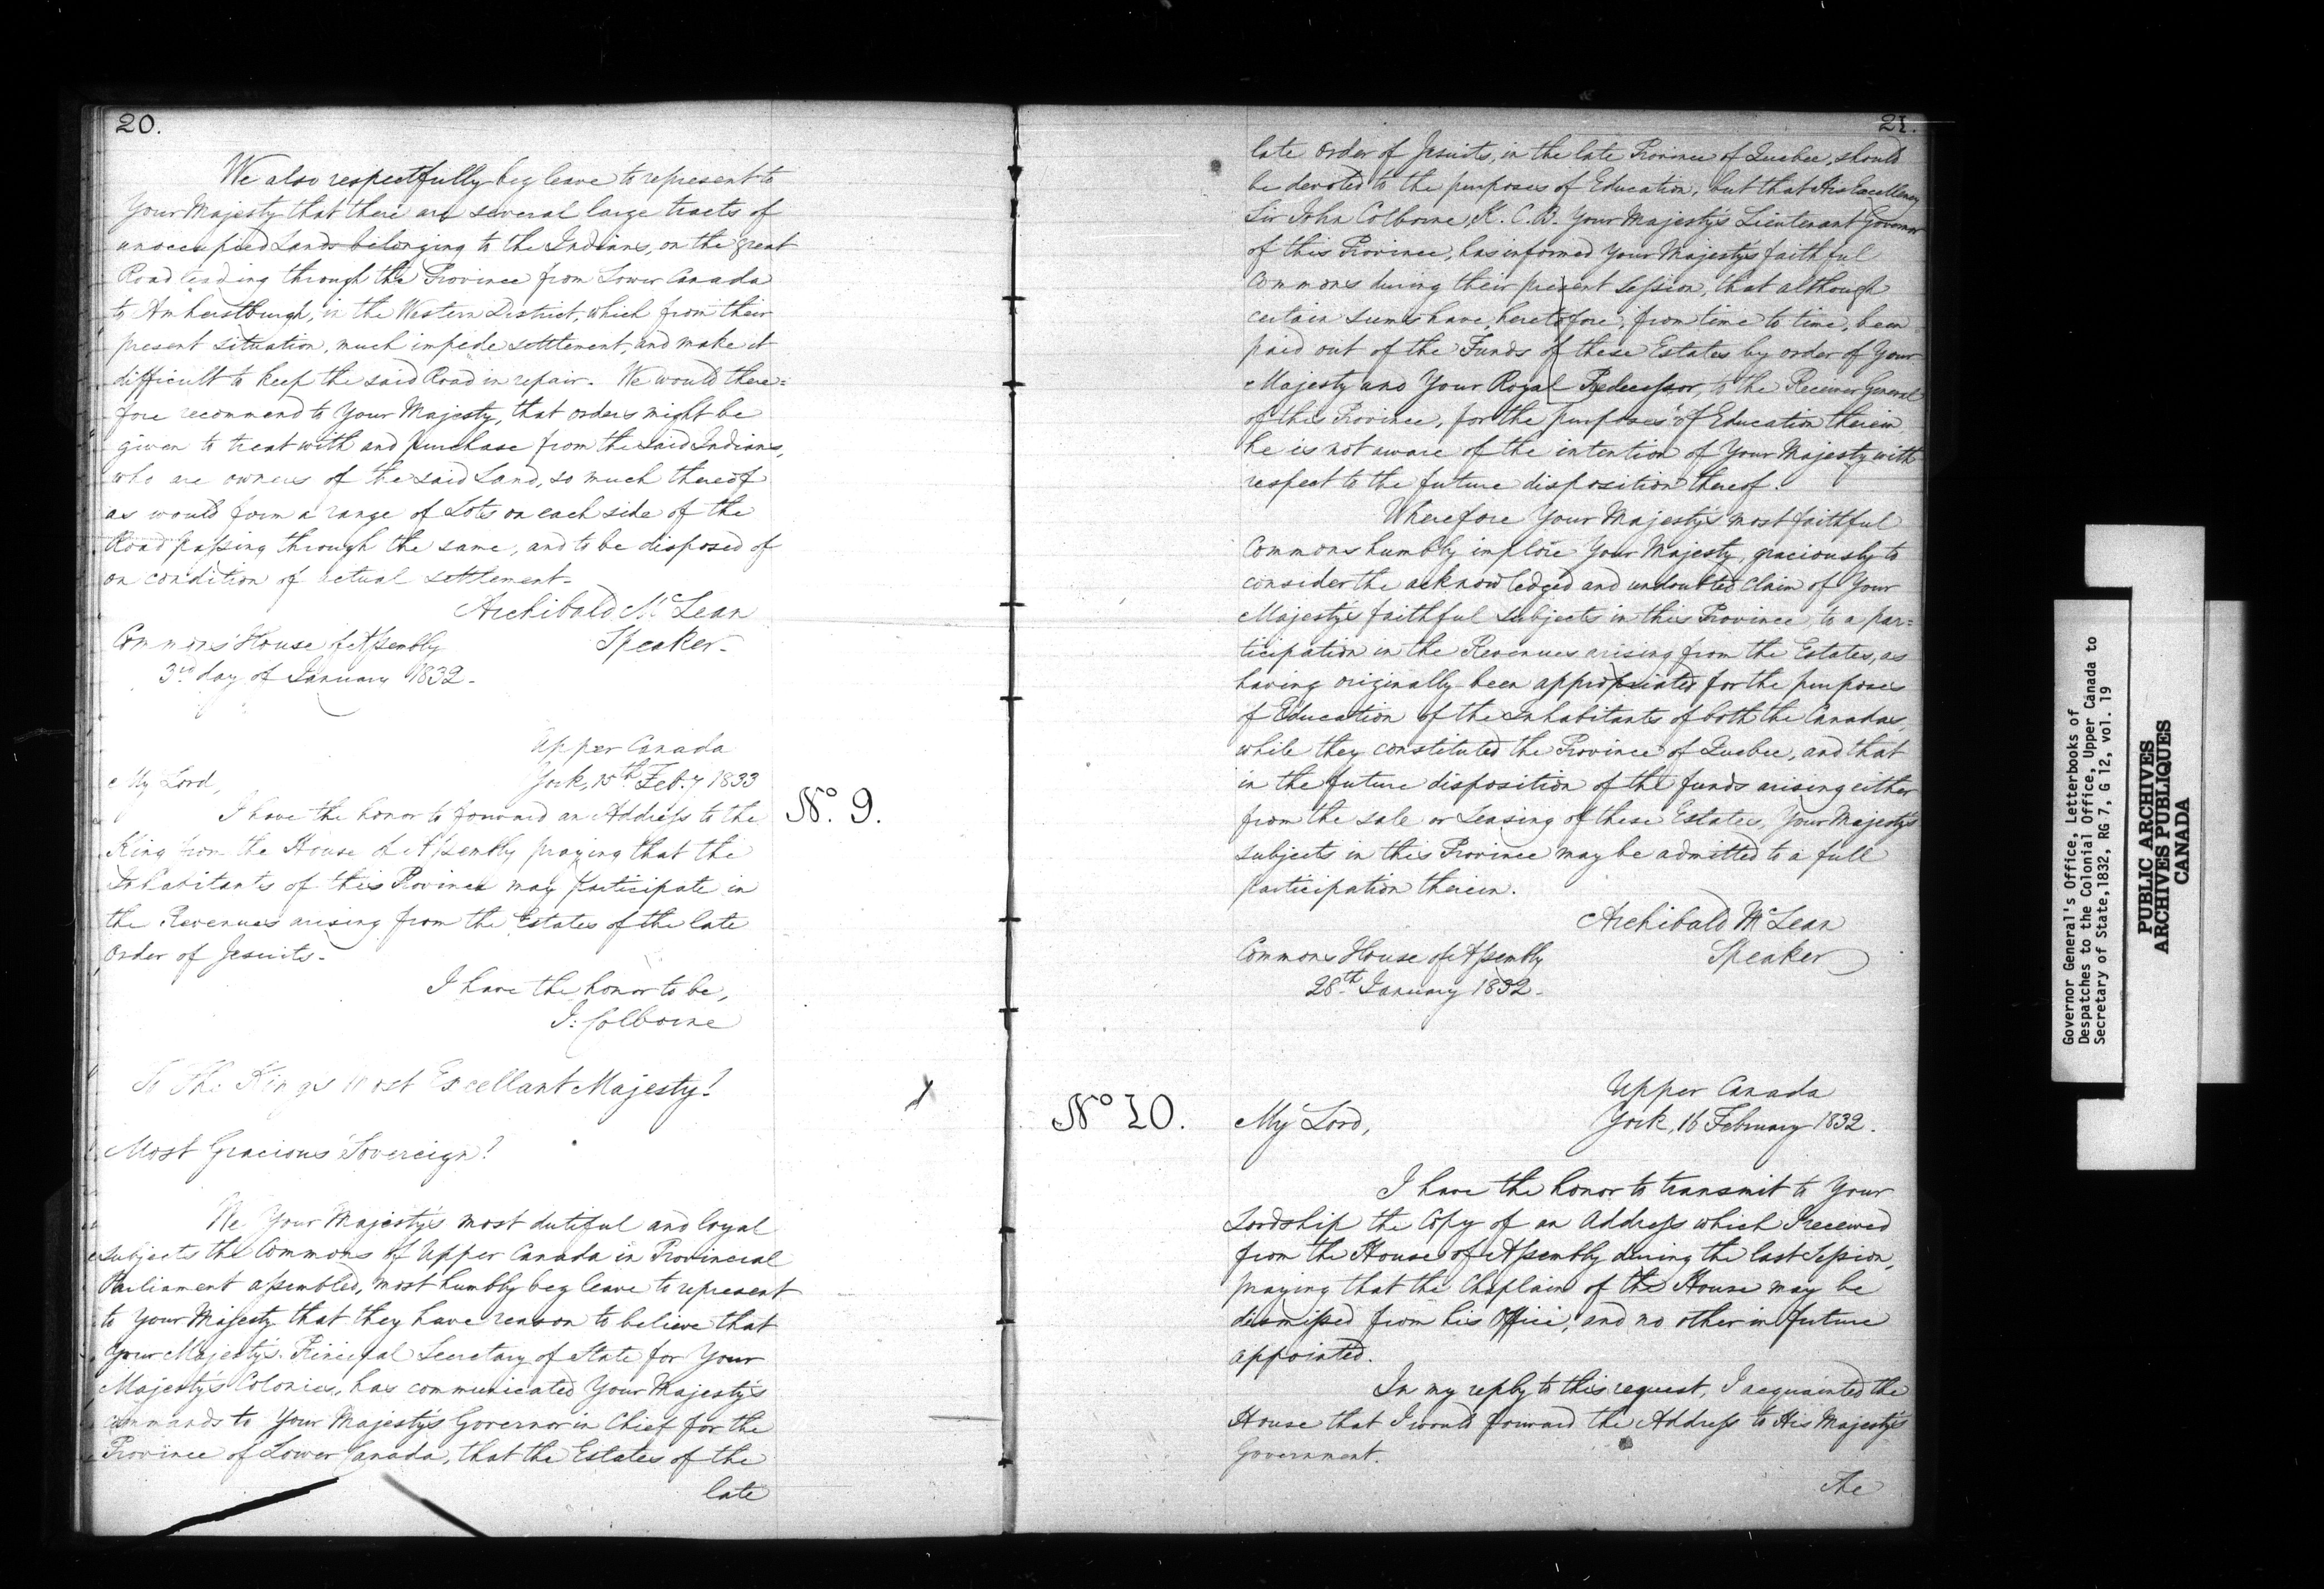 20.
We also respectfully beg leave to represent to
Your Majesty that there are several large tracts of
unoccupied Lands belonging to the Indians, on the great
Road leading through the Province from Lower Canada
to Amherstburgh, in the Western District, which from their
present situation, much impede settlement, and make it
difficult to keep the said Road in repair. We would there=
fore recommend to Your Majesty, that orders might be
given to treat with and purchase from the said Indians,
who are owners of the said Land, so much thereof
as would form a range of Lots on each side of the
Road passing through the same, and to be disposed of
on condition of actual settlement.
Archibald McLean
Commons House of Assembly Speaker.
3rd day of January 1832.
Upper Canada
My Lord, York, 15th Feby 1833
I have the honor to forward an Address to the No. 9.
King from the House of Assembly praying that the
Inhabitants of this Province may participate in
the Revenues arising from the Estates of the late
Order of Jesuits.
I have the honor to be,
J: Colborne
To The King's most Excellant Majesty!
Most Gracious Sovereign!
We Your Majesty's most dutiful and loyal
subjects the Commons of Upper Canada in Provincial
Parliament assembled, most humbly beg leave to represent
to Your Majesty that they have reason to believe that
Your Majesty's Principal Secretary of State for Your
Majesty's Colonies, has communicated Your Majesty's
commands to Your Majesty's Governor in Chief for the
Province of Lower Canada, that the Estates of the
late
21.
late Order of Jesuits, in the late Province of Quebec, should
be devoted to the purposes of Education, but that His Excellency
Sir John Colborne, K. C. B. Your Majesty's Lieutenant Governor
of this Province, has informed Your Majesty's faithful
Commons during their present Session, that although
certain sums have, heretofore, from time to time, been
paid out of the Funds of these Estates by order of Your
Majesty and Your Royal Predecessor, to the Receiver General
of this Province, for the purposes of Education therein
he is not aware of the intention of Your Majesty with
respect to the future disposition thereof.
Wherefore Your Majesty's most faithful
Commons humbly implore Your Majesty, graciously to
consider the acknowledged and undoubted claim of Your
Majesty's faithful subjects in this Province, to a par=
ticipation in the Revenues arising from the Estates, as
having originally been appropriated for the purposes
of Education of the Inhabitants of both the Canadas,
while they constituted the Province of Quebec, and that
in the future disposition of the funds arising either
from the sale or Leasing of these Estates, Your Majesty's
subjects in this Province may be admitted to a full
participation therein.
Archibald McLean
Commons House of Assembly Speaker
28th January 1832.
Upper Canada
No 10. My Lord, York, 16 February 1832.
I have the honor to transmit to Your
Lordship the Copy of an Address which I received
from the House of Assembly during the last Session,
praying that the Chaplain of the House may be
dismissed from his Office, and no other in future
appointed.
In my reply to this request, I acquainted the
House that I would forward the Address to His Majesty's
Government.
The
Governor General's Office, Letterbooks of
Despatches to the Colonial Office, Upper Canada to
Secretary of State, 1832, RG 7, G 12, vol. 19
PUBLIC ARCHIVES
ARCHIVES PUBLIQUES
CANADA